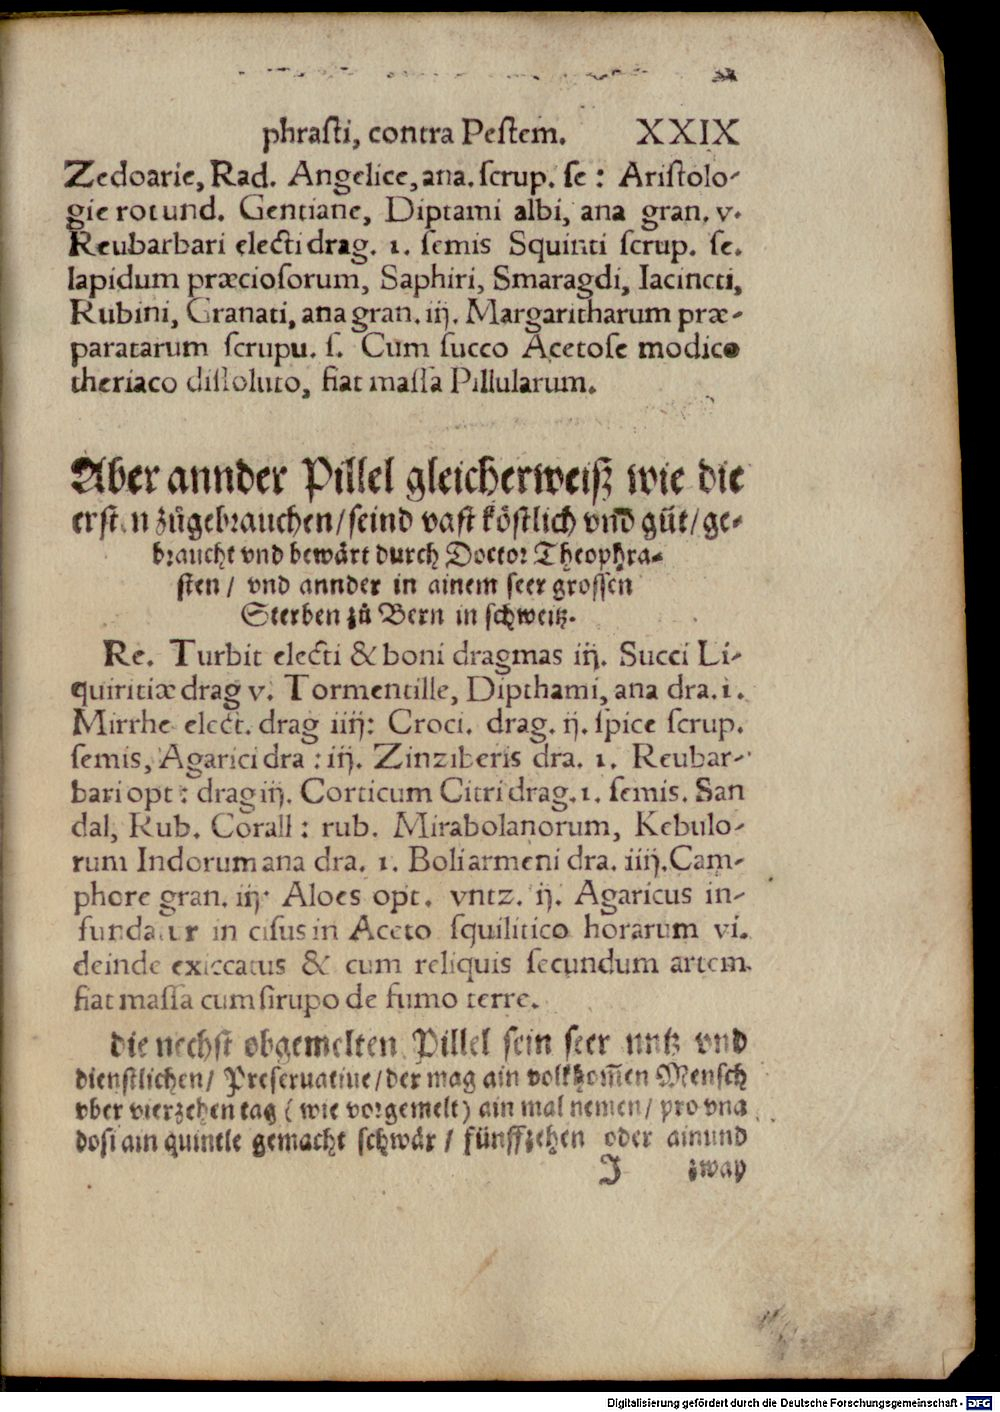 phraſti, contra Peſtem. XXIX
Zedoarie, Rad. Angelice, ana. ſcrup. ſe : Ariſtolo-
gie rotund. Gentiane, Diptami albi, ana gran. v.
Reubarbari electi drag. 1. ſemis Squinti ſcrup. ſe.
lapidum præcioſorum, Saphiri, Smaragdi, Iacincti,
Rubini, Granati, ana gran. iij. Margaritharum præ-
paratarum ſcrupu. ſ. Cum ſucco Acetoſe modico
theriaco diſſoluto, fiat maſſa Pillularum.
Aber annder Pillel gleicherweiſz wie die
erſten zůgebrauchen/ ſeind vaſt köſtlich vnd gůt/ ge-
braucht vnd bewärt durch Doctor Theophra-
ſten/ vnd annder in ainem ſeer groſſen
Sterben zů Bern in ſchweitz.
Re. Turbit electi & boni dragmas iij. Succi Li-
quiritiæ drag v. Tormentille, Dipthami, ana dra. 1.
Mirrhe elect. drag iiij: Croci. drag. ij. ſpice ſcrup.
ſemis, Agarici dra : iij. Zinziberis dra. 1. Reubar-
bari opt : drag iij. Corticum Citri drag. 1. ſemis. San
dal, Rub. Corall : rub. Mirabolanorum, Kebulo-
rum Indorum ana dra. 1. Boli armeni dra. iiij. Cam-
phore gran. iij. Aloes opt. vntz. ij. Agaricus in-
fundatur in ciſus in Aceto ſquilitico horarum vi.
deinde exiccatus & cum reliquis ſecundum artem.
fiat maſſa cum ſirupo de fumo terre.
die nechſt obgemelten Pillel ſein ſeer nutz vnd
dienſtlichen/ Preſeruatiue/ der mag ain volkhom̄en Menſch
vber vierzehen tag ( wie vorgemelt) ain mal nemen/ pro vna
doſi ain quintle gemacht ſchwär/ fünffzehen oder ainund
J zway
Digitalisierung gefördert durch die Deutsche Forschungsgemeinschaft - DFG